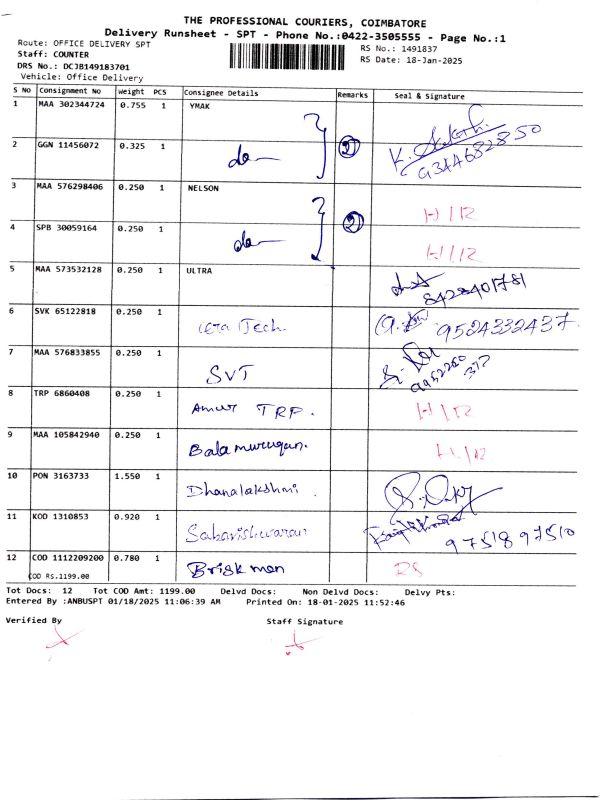 THE PROFESSIONAL COURIERS, COIMBATORE
Delivery Runsheet - SPT - Phone No.:0422-3505555 - Page No.:1
Route: OFFICE DELIVERY SPT
RS No.: 1491837
Staff: COUNTER
RS Date: 18-Jan-2025
DRS No.: DCJB149183701
Vehicle: Office Delivery
S No Consignment No Weight PCS Consignee Details Remarks Seal & Signature
1 MAA 302344724 0.755 1 YMAK
2 GGN 11456072 0.325 1 do 2 9344682850
3 MAA 576298406 0.250 1 NELSON H/12
4 SPB 30059164 0.250 1 do 2 H/12
5 MAA 573532128 0.250 1 ULTRA 8428401781
6 SVK 65122818 0.250 1 Tech. 9524332437.
7 MAA 576833855 0.250 1 SVT
8 TRP 6860408 0.250 1 Amur TRP. H/12
9 MAA 105842940 0.250 1 Balamurugan. H/12
10 PON 3163733 1.550 1 Dhanalakshmi.
11 KOD 1310853 0.920 1 Sabarishwaran 9751897510
12 COD 1112209200 0.780 1 Brisk man RS
COD RS.1199.00
Tot Docs: 12 Tot COD Amt: 1199.00 Delvd Docs: Non Delvd Docs: Delvy Pts:
Entered By :ANBUSPT 01/18/2025 11:06:39 AM Printed On: 18-01-2025 11:52:46
Verified By Staff Signature